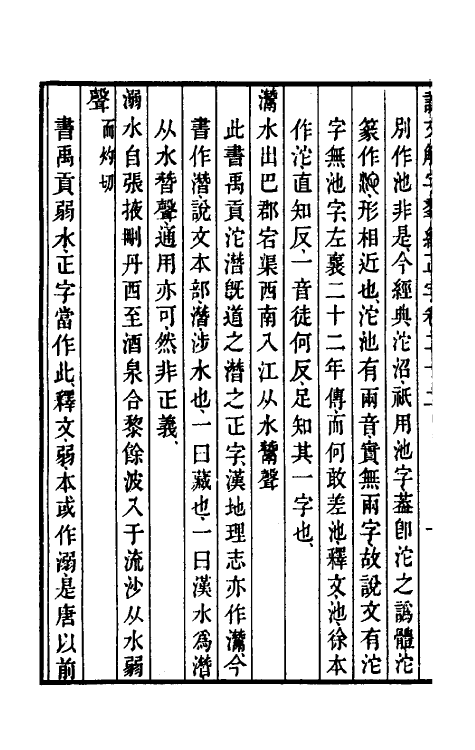 別作池非是今經典沱沼祇用池字葢卽沱之譌體沱
篆作𣲵形相近也沱池有兩音實無兩字故說文有沱
字無池字左襄二十二年傳而何敢差池釋文池徐本
作沱直知反一音徒何反足知其一字也
灊水出巴郡宕渠西南入江从水鬵聲
此書禹貢沱濳旣道之濳之正字漢地理志亦作灊今
書作濳說文本部濳涉水也一曰藏也一曰漢水爲濳
从水朁聲通用亦可然非正義
溺水自張掖刪丹西至酒泉合黎餘波入于流沙从水弱
聲而灼切
書禹貢弱水正字當作此釋文弱本或作溺是唐以前